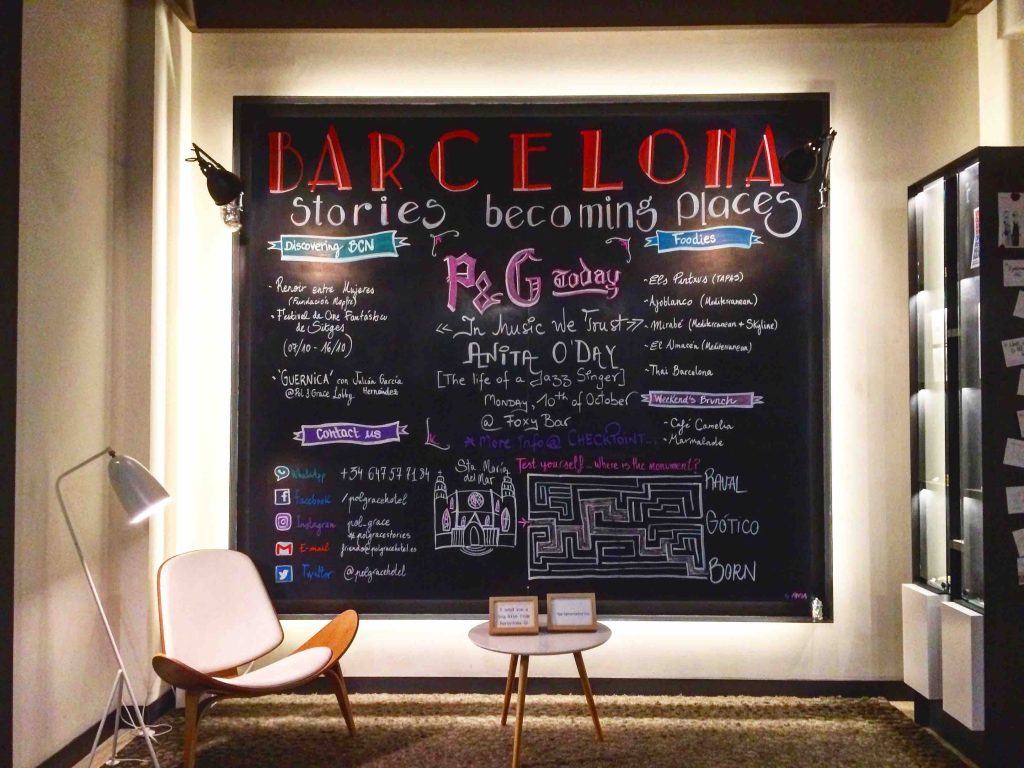 BARCELONA
stories becoming places
Discovering BCN
- Renoir entre Mujeres
(Fundación Mapfre)
- Festival de Cine Fantástico
de Sitges
(07/10 - 16/10)
- 'GUERNICA' con Julián García
Hernández
@Pol & Grace Lobby
Contact us
WhatsApp +34 647 57 71 84
Facebook /polgracehotel
Instagram pol_grace
#polgracestories
E-mail friends@polgracehotel.es
Twitter @polgracehotel
P&G Today
<<In Music We Trust>>
ANITA O'DAY
[The life of a Jazz Singer]
MONDAY, 10th of October
@ Foxy Bar
* More Info @ CHECKPOINT...
Foodies
- Els Pintxus (TAPAS)
- Ajoblanco (Mediterranean)
- Mirabé (Mediterranean + Skyline)
- El Almacén (Mediterranean)
- Thai Barcelona
Weekend's Brunch
- Café Camelia
- Marmalade
Sta. María
del Mar
Test yourself... where is the monument?
RAVAL
GÓTICO
BORN